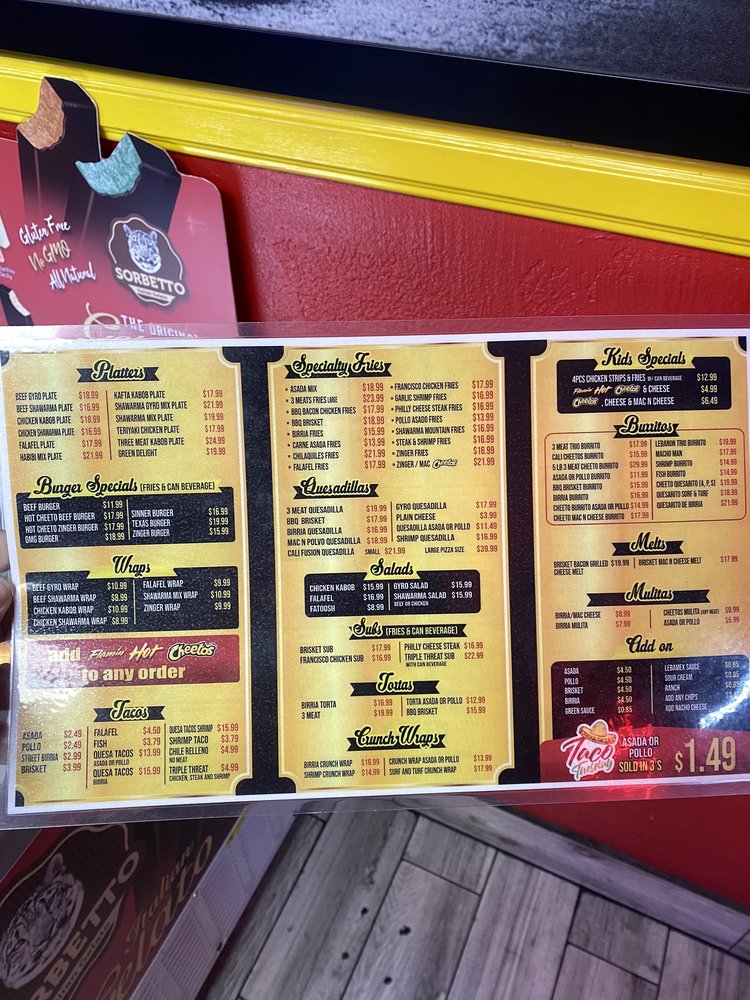 Gluten Free
No GMO
All Natural
SORBETTO
THE ORIGINAL
Platters
BEEF GYRO PLATE $18.99
BEEF SHAWARMA PLATE $16.99
CHICKEN KABOB PLATE $16.99
CHICKEN SHAWARMA PLATE $16.99
FALAFEL PLATE $17.99
HABIBI MIX PLATE $21.99
KAFTA KABOB PLATE $17.99
SHAWARMA GYRO MIX PLATE $21.99
SHAWARMA MIX PLATE $19.99
TERIYAKI CHICKEN PLATE $17.99
THREE MEAT KABOB PLATE $24.99
GREEN DELIGHT $19.99
Burger Specials (FRIES & CAN BEVERAGE)
BEEF BURGER $11.99
HOT CHEETO BEEF BURGER $17.99
HOT CHEETO ZINGER BURGER $17.99
OMG BURGER $18.99
SINNER BURGER $16.99
TEXAS BURGER $19.99
ZINGER BURGER $15.99
Wraps
BEEF GYRO WRAP $10.99
BEEF SHAWARMA WRAP $8.99
CHICKEN KABOB WRAP $10.99
CHICKEN SHAWARMA WRAP $8.99
FALAFEL WRAP $9.99
SHAWARMA MIX WRAP $10.99
ZINGER WRAP $9.99
add Flamin' Hot Cheetos
to any order
Tacos
ASADA $2.49
POLLO $2.49
STREET BIRRIA $2.99
BRISKET $3.99
FALAFEL $4.50
FISH $3.79
QUESA TACOS $13.99
ASADA OR POLLO
QUESA TACOS $15.99
BIRRIA
QUESA TACOS SHRIMP $15.99
SHRIMP TACO $3.79
CHILE RELLENO $4.99
NO MEAT
TRIPLE THREAT $4.99
CHICKEN, STEAK AND SHRIMP
Specialty Fries
• ASADA MIX $18.99
• 3 MEATS FRIES LARGE $23.99
• BBQ BACON CHICKEN FRIES $17.99
• BBQ BRISKET $18.99
• BIRRIA FRIES $15.99
• CARNE ASADA FRIES $13.99
• CHILAQUILES FRIES $21.99
• FALAFEL FRIES $17.99
• FRANCISCO CHICKEN FRIES $17.99
• GARLIC SHRIMP FRIES $16.99
• PHILLY CHEESE STEAK FRIES $16.99
• POLLO ASADO FRIES $13.99
• SHAWARMA MOUNTAIN FRIES $16.99
• STEAK & SHRIMP FRIES $16.99
• ZINGER FRIES $16.99
• ZINGER / MAC Cheetos $21.99
Quesadillas
3 MEAT QUESADILLA $19.99
BBQ BRISKET $17.99
BIRRIA QUESADILLA $16.99
MAC N POLVO QUESADILLA $18.99
CALI FUSION QUESADILLA SMALL $21.99 LARGE PIZZA SIZE $39.99
GYRO QUESADILLA $17.99
PLAIN CHEESE $13.99
QUESADILLA ASADA OR POLLO $11.49
SHRIMP QUESADILLA $16.99
Salads
CHICKEN KABOB $15.99
FALAFEL $16.99
FATOOSH $8.99
GYRO SALAD $15.99
SHAWARMA SALAD $15.99
BEEF OR CHICKEN
Subs (FRIES & CAN BEVERAGE)
BRISKET SUB $17.99
FRANCISCO CHICKEN SUB $16.99
PHILLY CHEESE STEAK $16.99
TRIPLE THREAT SUB $22.99
WITH CAN BEVERAGE
Tortas
BIRRIA TORTA $16.99
3 MEAT $19.99
TORTA ASADA OR POLLO $12.99
BBQ BRISKET $15.99
Crunch Wraps
BIRRIA CRUNCH WRAP $16.99
SHRIMP CRUNCH WRAP $14.99
CRUNCH WRAP ASADA OR POLLO $13.99
SURF AND TURF CRUNCH WRAP $17.99
Kids Specials
4PCS CHICKEN STRIPS & FRIES W/ CAN BEVERAGE $12.99
Flamin' Hot Cheetos & CHEESE $4.99
Cheetos, CHEESE & MAC N CHEESE $6.49
Burritos
3 MEAT TRIO BURRITO $17.99
CALI CHEETO BURRITO $15.99
5 LB 3 MEAT CHEETO BURRITO $29.99
ASADA OR POLLO BURRITO $11.99
BBQ BRISKET BURRITO $15.99
BIRRIA BURRITO $16.99
CHEETO BURRITO ASADA OR POLLO $14.99
CHEETO MAC N CHEESE BURRITO $17.99
LEBANON TRIO BURRITO $19.99
MACHO MAN $17.99
SHRIMP BURRITO $14.99
FISH BURRITO $14.99
CHEETO QUESARITO (A, P, S) $19.99
QUESARITO SURF & TURF $18.99
QUESARITO DE BIRRIA $21.99
Melts
BRISKET BACON GRILLED $19.99
CHEESE MELT
BRISKET MAC N CHEESE MELT $17.99
Mulitas
BIRRIA/MAC CHEESE $8.99
BIRRIA MULITA $7.99
CHEETOS MULITA (ANY MEAT) $9.99
ASADA OR POLLO $5.99
Add on
ASADA $4.50
POLLO $4.50
BRISKET $4.50
BIRRIA $4.50
GREEN SAUCE $0.85
LEBAMEX SAUCE $0.85
SOUR CREAM $0.85
RANCH $0.85
ADD ANY CHIPS
ADD NACHO CHEESE
Taco Tuesday
ASADA OR
POLLO
SOLD IN 3'S
$1.49
SORBETTO
Italian
Gelato